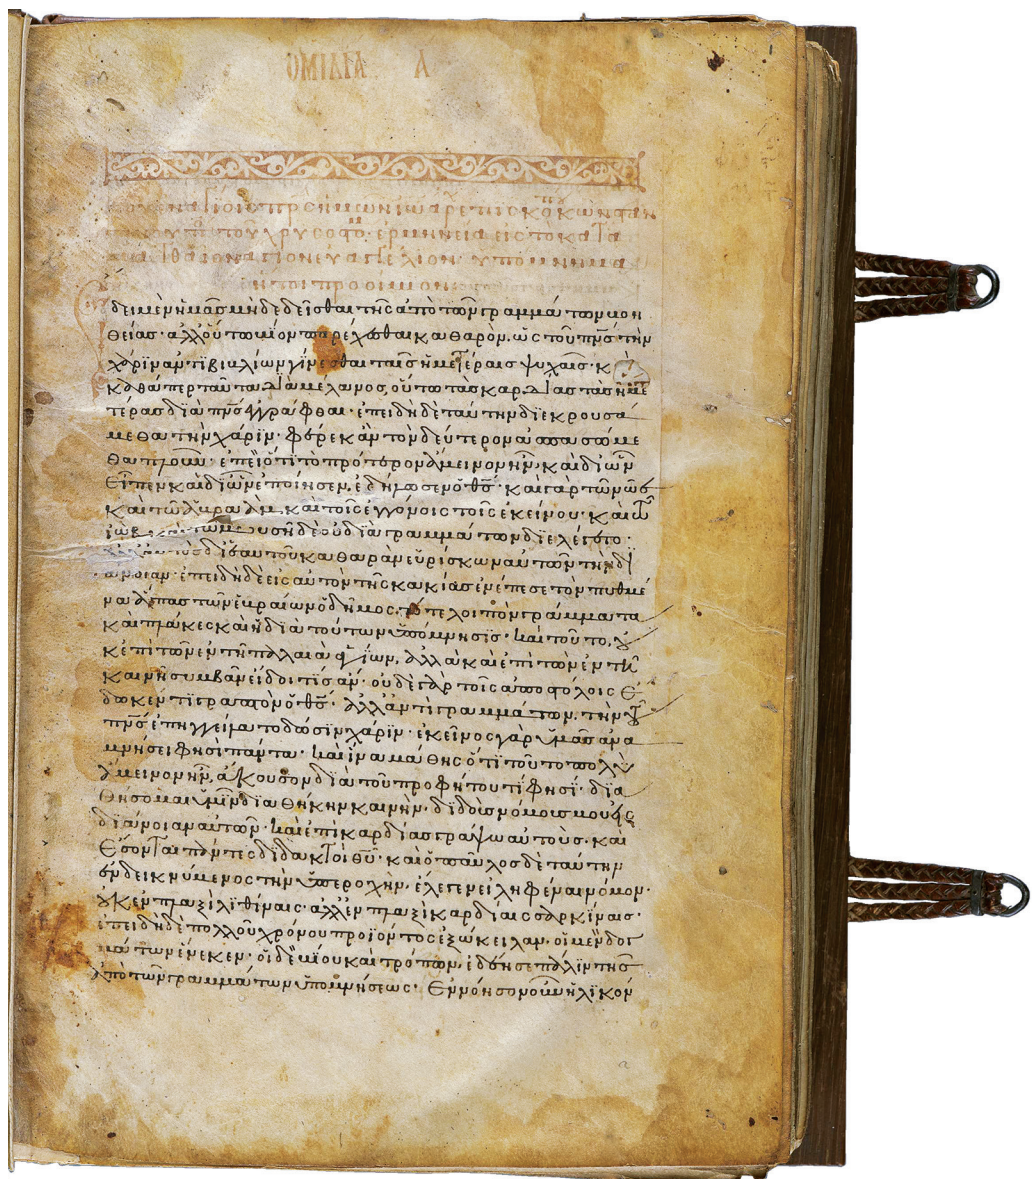 ΟΜΙΛΙΑ Α
τοῦ ἐν ἁγίοις πρς ἡμῶν ἰω ἀρχεπισκο κωνσταν
τινουπο του χρυσοστο· ἑρμηνεία εἰς τὸ κατα
ματθαῖον ἅγιον εὐαγγέλιον· ὑπόμνημα
ἤτοι προοίμιον
δει μὲν ἡμᾶς μὴ δὲ δεῖσθαι τῆς ἀπὸ τῶν γραμμάτων βοη
θείας· ἀλλ' οὕτω βίον παρέχεσθαι καθαρὸν, ὡς τοῦ πνς τὴν
χάριν ἀντὶ βιβλίων γίνεσθαι ταῖς ἡμετέραις ψυχαῖς· κ
καθάπερ ταῦτα διὰ μέλανος, οὕτω τὰς καρδίας τὰς ἡμε
τέρας διὰ πνς ἐγγράφθαι· ἐπειδὴ δὲ ταύτην διεκρουσά
μεθα τὴν χάριν· φέρε κἂν τὸν δεύτερον ἀσπασώμε
θα πλοῦν· ἐπεὶ ὅτι τὸ πρότερον ἄμεινον ἦν, καὶ δι' ὧν
εἶπεν καὶ δι' ὧν ἐποίησεν, ἐδήλωσεν ὁ θς· καὶ γὰρ τῷ νῶε
καὶ τῷ ἀβραὰμ, καὶ τοῖς ἐγγόνοις τοῖς ἐκείνου· καὶ τῷ
ἰὼβ καὶ τῷ μωυσῆ δὲ οὐ διὰ γραμμάτων διελέγετο·
ἀλλ' αὐτὸς δι' ἑαυτοῦ καθαρὰν εὑρίσκων αὐτῶν τὴν δι
άνοιαν· ἐπειδὴ δὲ εἰς αὐτὸν τῆς κακίας ἐνέπεσε τὸν πυθμέ
να ἅπας τῶν ἑβραίων ὁ δῆμος, τότε λοιπὸν γράμματα
καὶ πλάκες καὶ ἡ διὰ τούτων ὑπόμνησις· καὶ τοῦτο, οὐ
κ ἐπὶ τῶν ἐν τῇ παλαιᾷ ἁγίων, ἀλλὰ καὶ ἐπὶ τῶν ἐν τῇ
καινῇ συμβὰν εἴδοι τίς ἄν· οὐδὲ γὰρ τοῖς ἀποστόλοις ἔ
δωκέν τι γραπτὸν ὁ θς· ἀλλ' ἀντὶ γραμμάτων, τὴν τοῦ
πνς ἐπηγγείλατο δώσειν χάριν· ἐκεῖνος γὰρ ὑμᾶς ἀνα
μνήσει φησὶ πάντα· καὶ ἵνα μάθης ὅτι τοῦτο πολὺ
ἄμεινον ἦν, ἄκουσον διὰ τοῦ προφήτου τί φησί· δια
θήσομαι ὑμῖν διαθήκην καινὴν· διδοὺς νόμους μου εἰς
διάνοιαν αὐτῶν· καὶ ἐπὶ καρδίας γράψω αὐτοὺς· καὶ
ἔσονται πάντες διδακτοὶ θυ· καὶ ὁ παῦλος δὲ ταύτην
ἐνδεικνύμενος τὴν ὑπεροχὴν, ἔλεγεν εἰληφέναι νόμον·
οὐκ ἐν πλαξὶ λιθίναις· ἀλλ' ἐν πλαξὶ καρδίαις σαρκίναις·
ἐπειδὴ δὲ πολλοῦ χρόνου προϊόντος ἐξώκειλαν, οἱ μὲν δογ
μάτων ἕνεκεν· οἱ δὲ βίου καὶ τρόπων, ἐδέησε πάλιν τῆς
ἀπὸ τῶν γραμμάτων ὑπομνήσεως· Ἐννόησον οὖν ἡλίκον